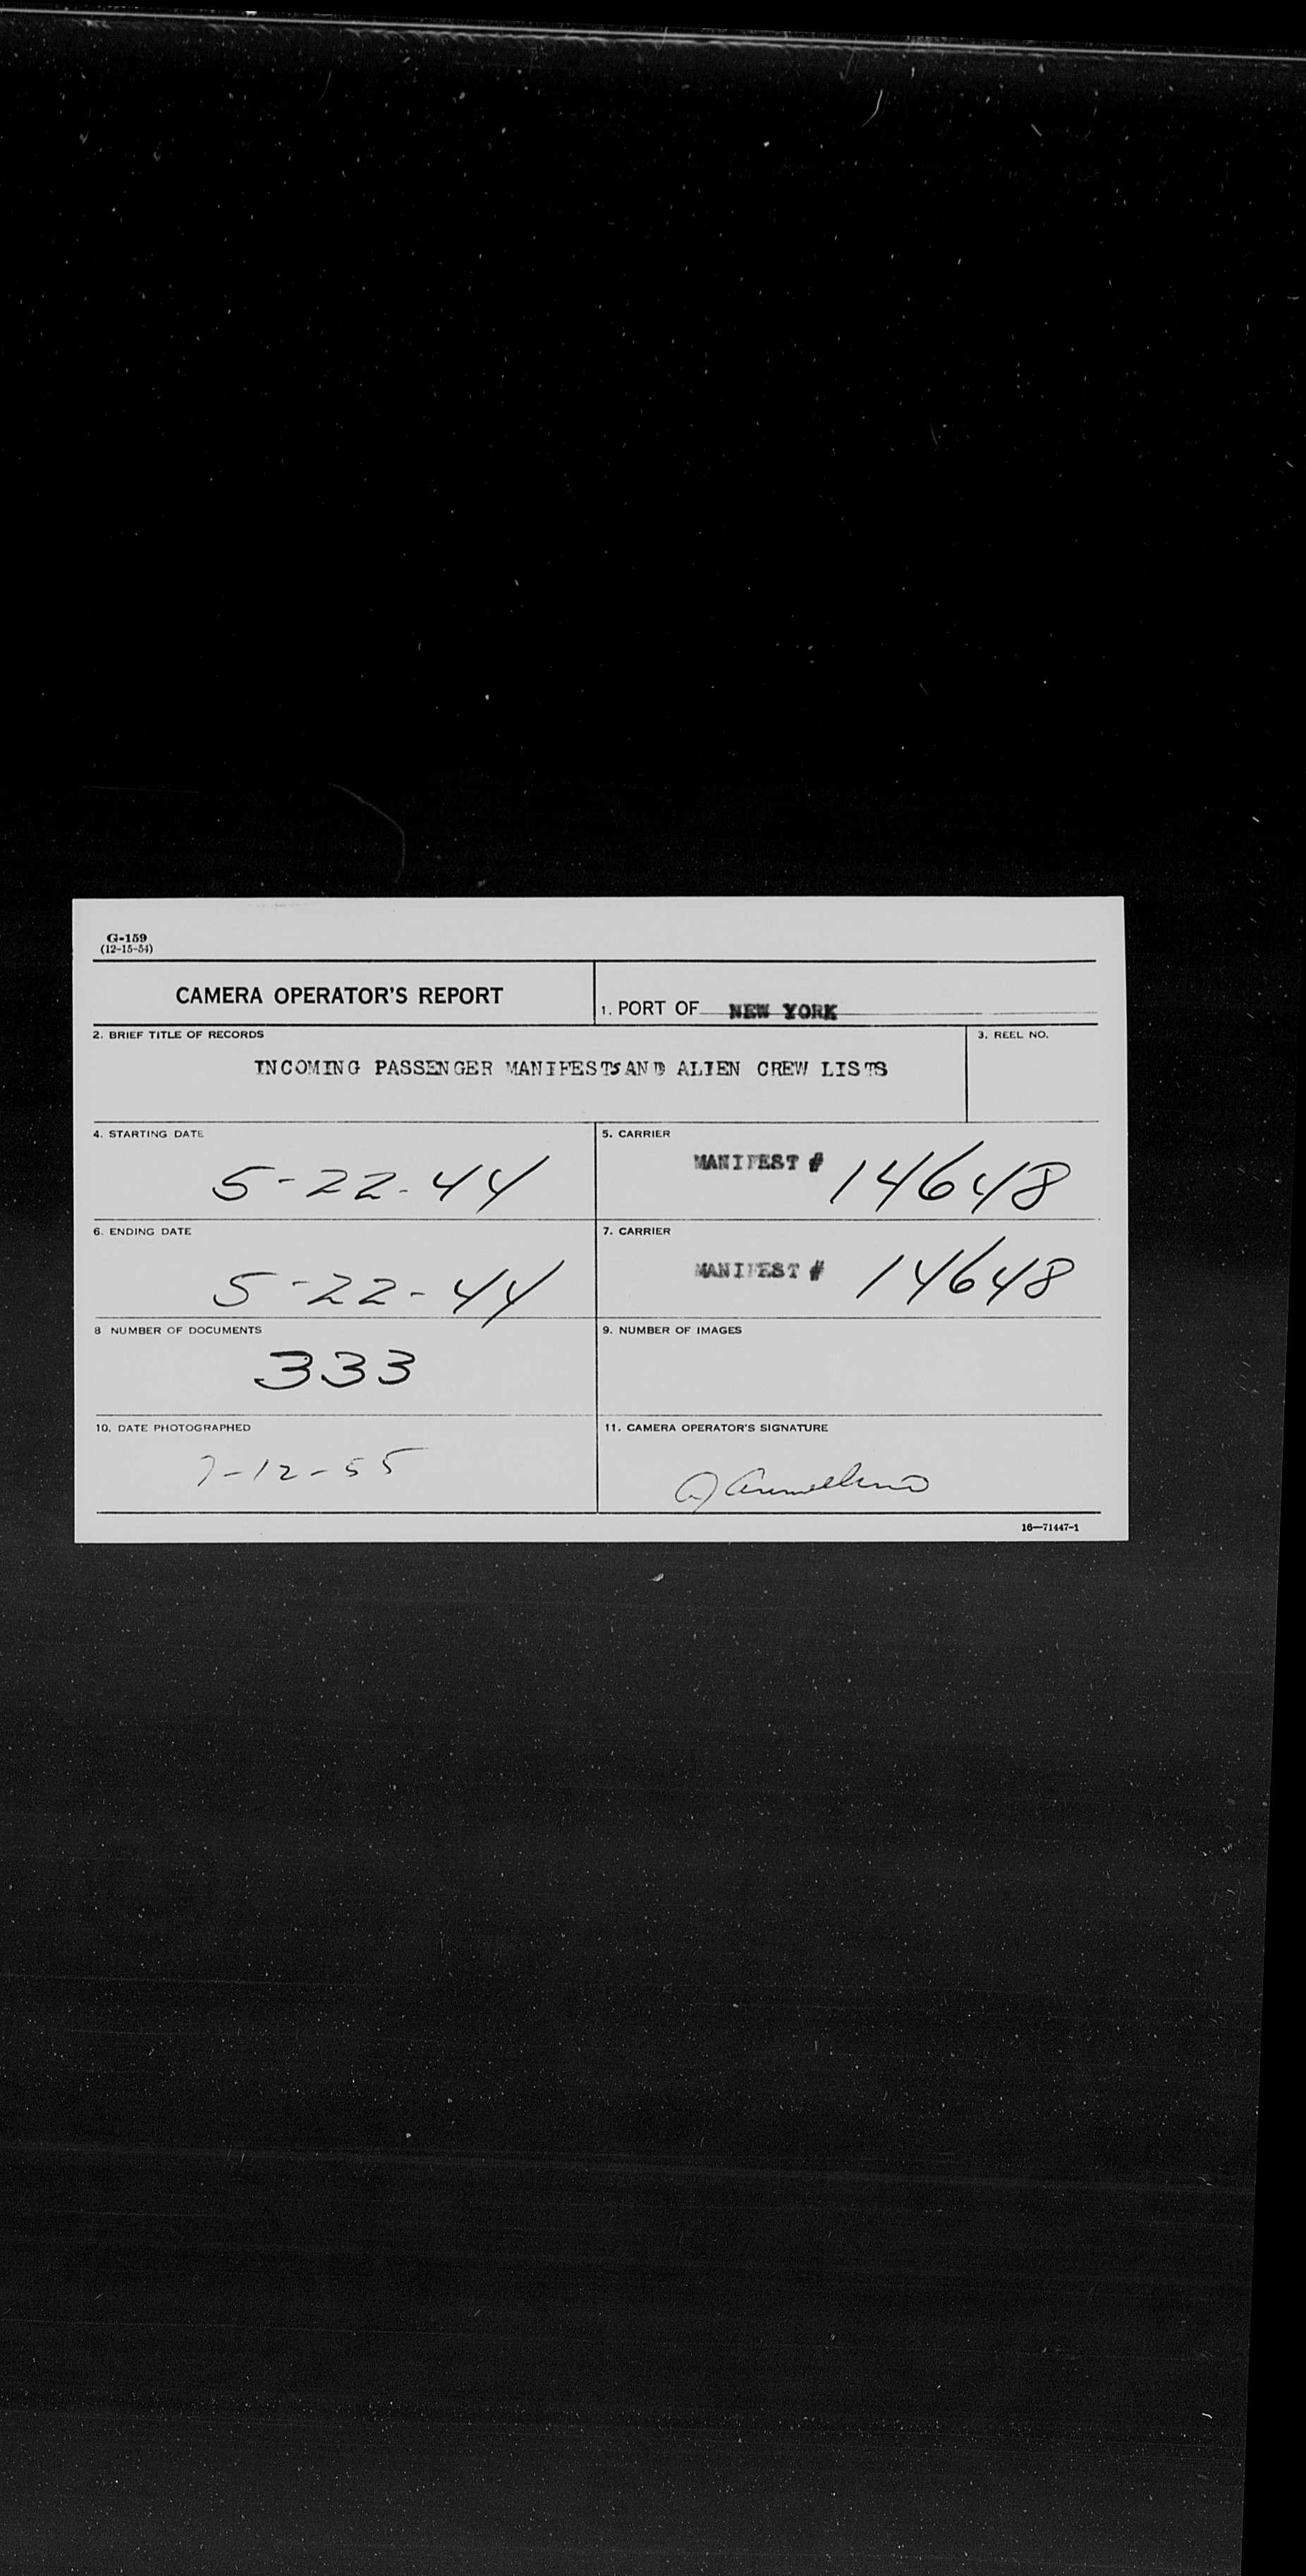 G-159
(12-15-54)
CAMERA OPERATOR'S REPORT
1. PORT OF NEW YORK
2. BRIEF TITLE OF RECORDS
3. REEL NO.
INCOMING PASSENGER MANIFESTS AND ALIEN CREW LISTS
4. STARTING DATE
5-22-44
5. CARRIER
MANIFEST # 14648
6. ENDING DATE
5-22-44
7. CARRIER
MANIFEST # 14648
8 NUMBER OF DOCUMENTS
333
9. NUMBER OF IMAGES
10. DATE PHOTOGRAPHED
7-12-55
11. CAMERA OPERATOR'S SIGNATURE
16—71447-1